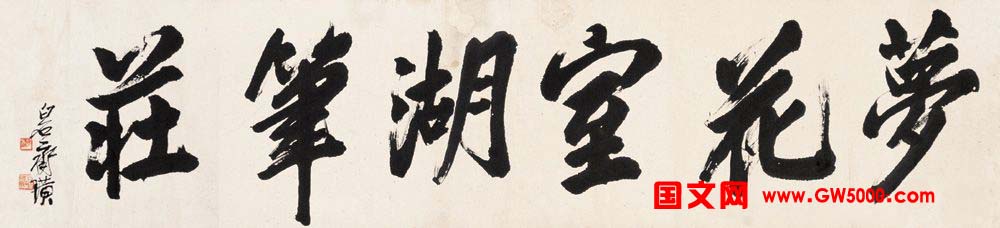 夢花室湖筆莊
白石齊璜
国文网 www.GW5000.com